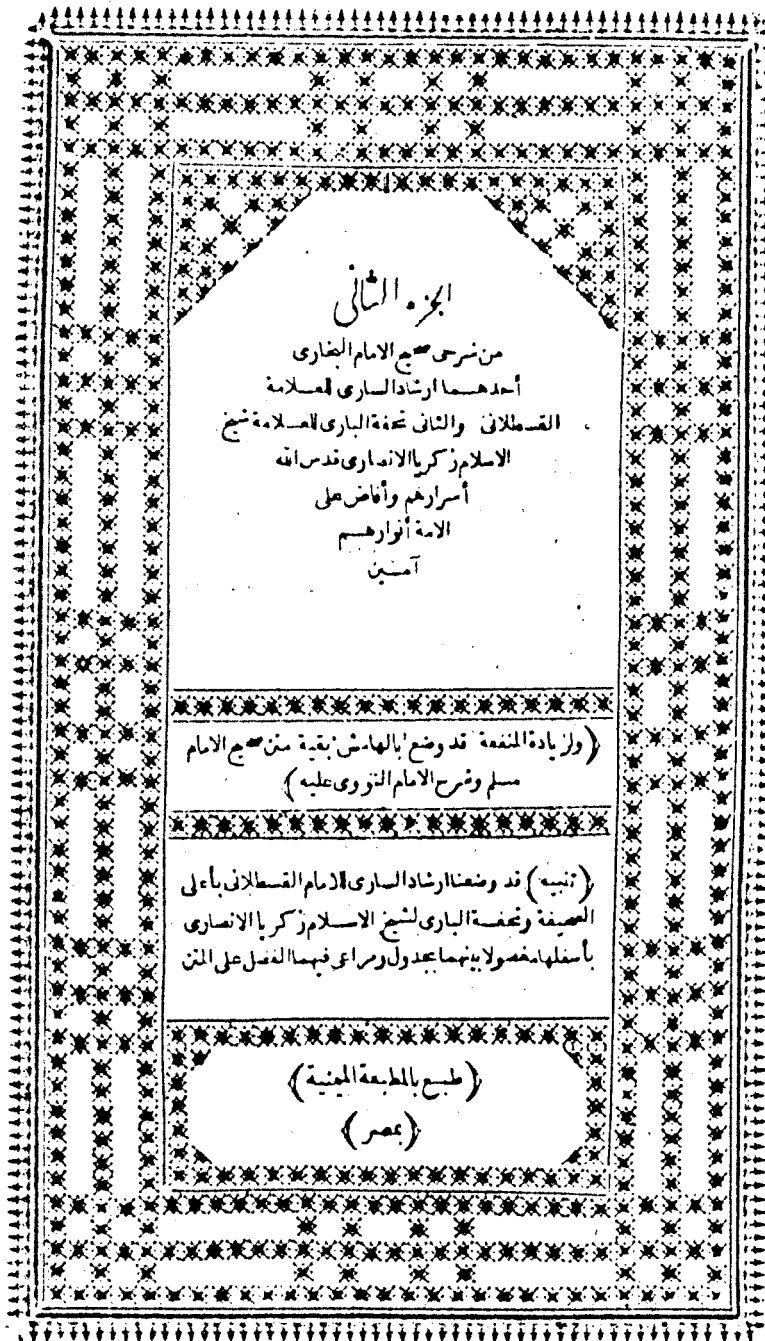 الجزء الثانى
من شرحى صحيح الامام البخارى
أحدهما ارشاد السارى للعلامة
القسطلانى والثانى تحفة البارى للعلامة شيخ
الاسلام زكريا الانصارى قدس الله
أسرارهم وأفاض على
الامة أنوارهم
آمين
(ولزيادة المنفعة قد وضع بالهامش بقية متن صحيح الامام
مسلم وشرح الامام النووى عليه)
(تنبيه) قد وضعنا ارشاد السارى للامام القسطلانى بأعلى
الصحيفة وتحفة البارى لشيخ الاسلام زكريا الانصارى
بأسفلها مفصولا بينهما بجدول ومراعى فيهما الفصل على المتن
(طبع بالمطبعة الميمنية)
(بمصر)